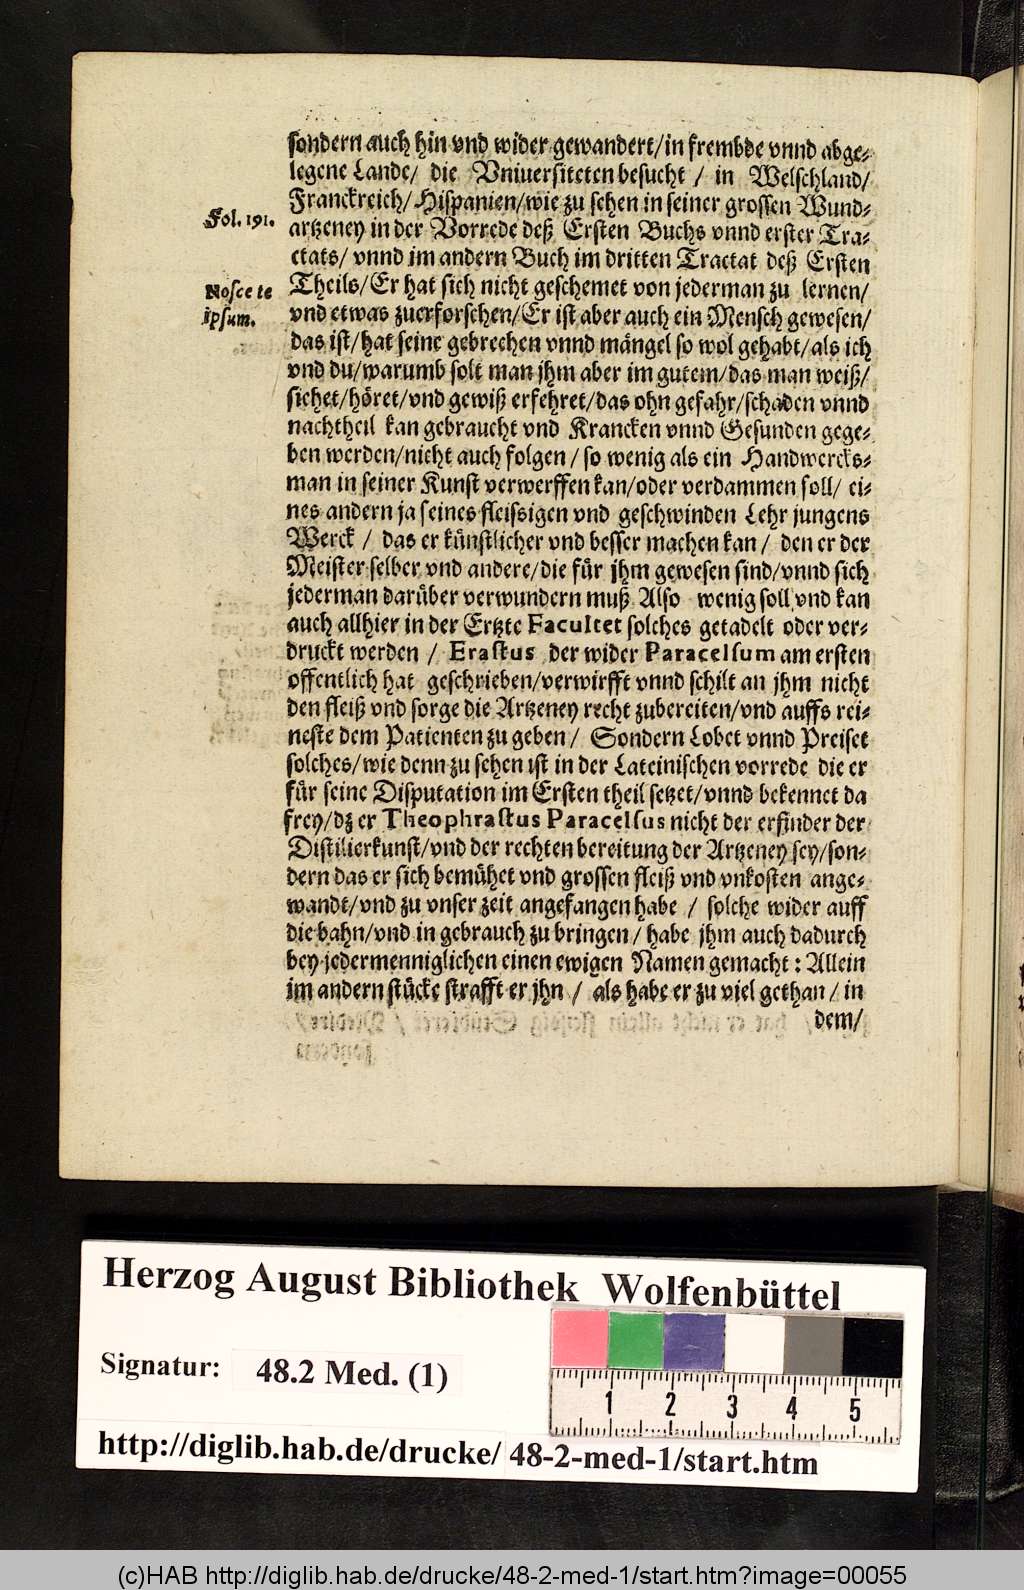 sondern auch hin vnd wider gewandert/in frembde vnnd abge-
legene Lande/ die Vniuersiteten besucht / in Welschland/
Franckreich/ Hispanien/wie zu sehen in seiner grossen Wund-
Fol. 191.
artzeney in der Vorrede deß Ersten Buchs vnnd erster Tra-
ctats/ vnnd im andern Buch im dritten Tractat deß Ersten
Nosce te
ipsum.
Theils/Er hat sich nicht geschemet von jederman zu lernen/
vnd etwas zuerforschen/Er ist aber auch ein Mensch gewesen/
das ist/hat seine gebrechen vnnd mängel so wol gehabt/als ich
vnd du/warumb solt man jhm aber im gutem/das man weiß/
sichet/höret/vnd gewiß erfehret/das ohn gefahr/schaden vnnd
nachtheil kan gebraucht vnd Krancken vnnd Gesunden gege-
ben werden/nicht auch folgen / so wenig als ein Handwercks-
man in seiner Kunst verwerffen kan/oder verdammen soll/ ei-
nes andern ja seines fleissigen vnd geschwinden Lehr jungens
Werck / das er künstlicher vnd besser machen kan / den er der
Meister selber vnd andere/die für jhm gewesen sind/vnnd sich
jederman darüber verwundern muß Also wenig soll vnd kan
auch allhier in der Ertzte Facultet solches getadelt oder ver-
druckt werden / Erastus der wider Paracelsum am ersten
offentlich hat geschrieben/verwirfft vnnd schilt an jhm nicht
den fleiß vnd sorge die Artzeney recht zubereiten/vnd auffs rei-
neste dem Patienten zu geben / Sondern Lobet vnnd Preiset
solches/wie denn zu sehen ist in der Lateinischen vorrede die er
für seine Disputation im Ersten theil setzet/vnnd bekennet da
frey/dz er Theophrastus Paracelsus nicht der erfinder der
Distilierkunst/vnd der rechten bereitung der Artzeney sey/son-
dern das er sich bemühet vnd grossen fleiß vnd vnkosten ange-
wandt/vnd zu vnser zeit angefangen habe / solche wider auff
die bahn/vnd in gebrauch zu bringen / habe jhm auch dadurch
bey jedermenniglichen einen ewigen Namen gemacht : Allein
im andern stücke strafft er jhn / als habe er zu viel gethan / in
dem/
Herzog August Bibliothek Wolfenbüttel
Signatur: 48.2 Med. (1)
1 2 3 4 5
http://diglib.hab.de/drucke/ 48-2-med-1/start.htm
(c)HAB http://diglib.hab.de/drucke/48-2-med-1/start.htm?image=00055